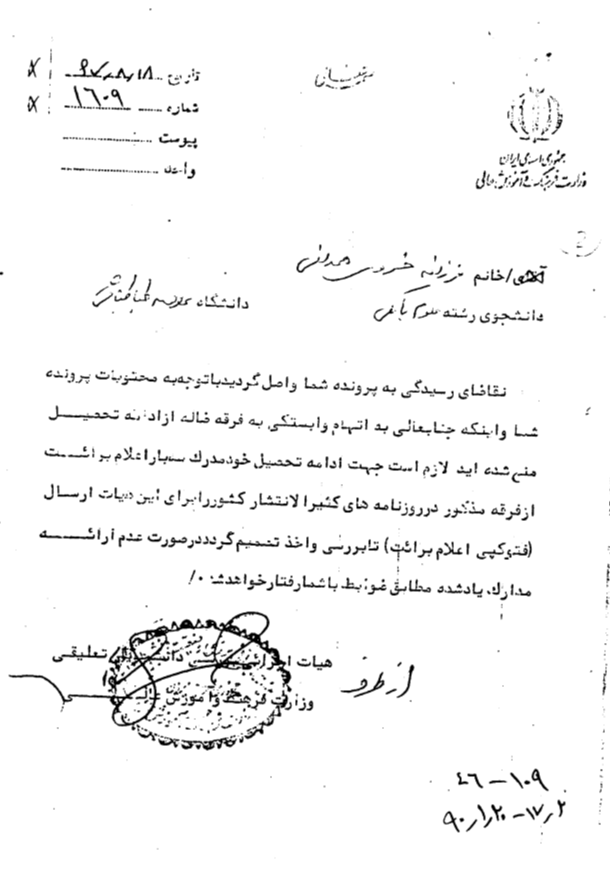 تاریخ
شماره ۱۶۰۹
پیوست
واحد
جمهوری اسلامی ایران
وزارت فرهنگ و آموزش عالی
آقای/خانم فرزانه خسروی همدانی
دانشجوی رشته دانشگاه علامه طباطبائی
تقاضای رسیدگی به پرونده شما واصل گردید باتوجه به محتویات پرونده
شما واینکه جنابعالی به اتهام وابستگی به فرقه ضاله از ادامه تحصیل
منع شده اید لازم است جهت ادامه تحصیل خود مدرک سه بار اعلام برائت
از فرقه مذکور در روزنامه های کثیرالانتشار کشور را برای این هیات ارسال
(فتوکپی اعلام برائت) تا بررسی واخذ تصمیم گردد در صورت عدم ارائه
مدارک یاد شده مطابق ضوابط با شما رفتار خواهد شد ۰/
از طرف هیات تعلیقی
وزارت فرهنگ و آموزش
۴۶-۱۰۹
۲ر۱۷-۲۰ر۱ر۹۰